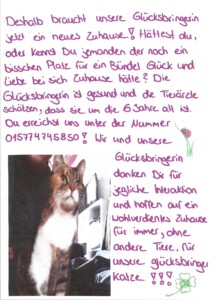 Deshalb braucht unsere Glücksbringerin
jetzt ein neues Zuhause! Hättest du,
oder kennst Du jemanden der noch ein
bisschen Platz für ein Bündel Glück und
Liebe bei sich Zuhause hätte? Die
Glücksbringerin ist gesund und die Tierärzte
schätzen, dass sie um die 6 Jahre alt ist.
Du erreichst uns unter der Nummer
015774745850! Wir und unsere
Glücksbringerin
danken Dir für
jegliche Interaktion
und hoffen auf ein
wohlverdientes Zuhause
für immer, ohne
andere Tiere, für
unsere glücksbringer
Katze!!!